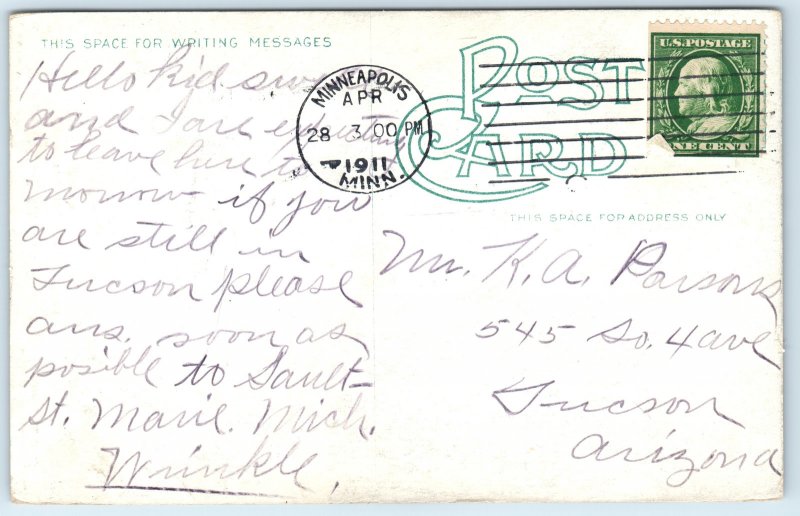 THIS SPACE FOR WRITING MESSAGES
Hello kid
and I are expecting
to leave here to
morrow if you
are still in
Tucson please
ans. soon as
posible to Sault
St. Marie. Mich.
Wrinkle,
MINNEAPOLIS
APR
28 3 00 PM
1911
MINN.
POST
CARD
U.S. POSTAGE
ONE CENT
THIS SPACE FOR ADDRESS ONLY
Mr. K. A. Parsons
545 So. 4 ave
Tucson
Arizona